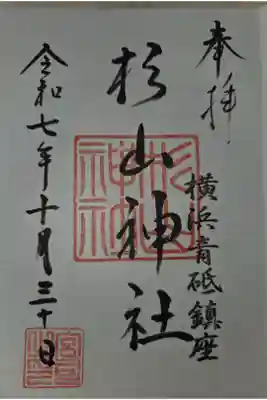 奉拝
横浜青砥鎮座
杉山神社
令和七年十月三十日
杉山神社